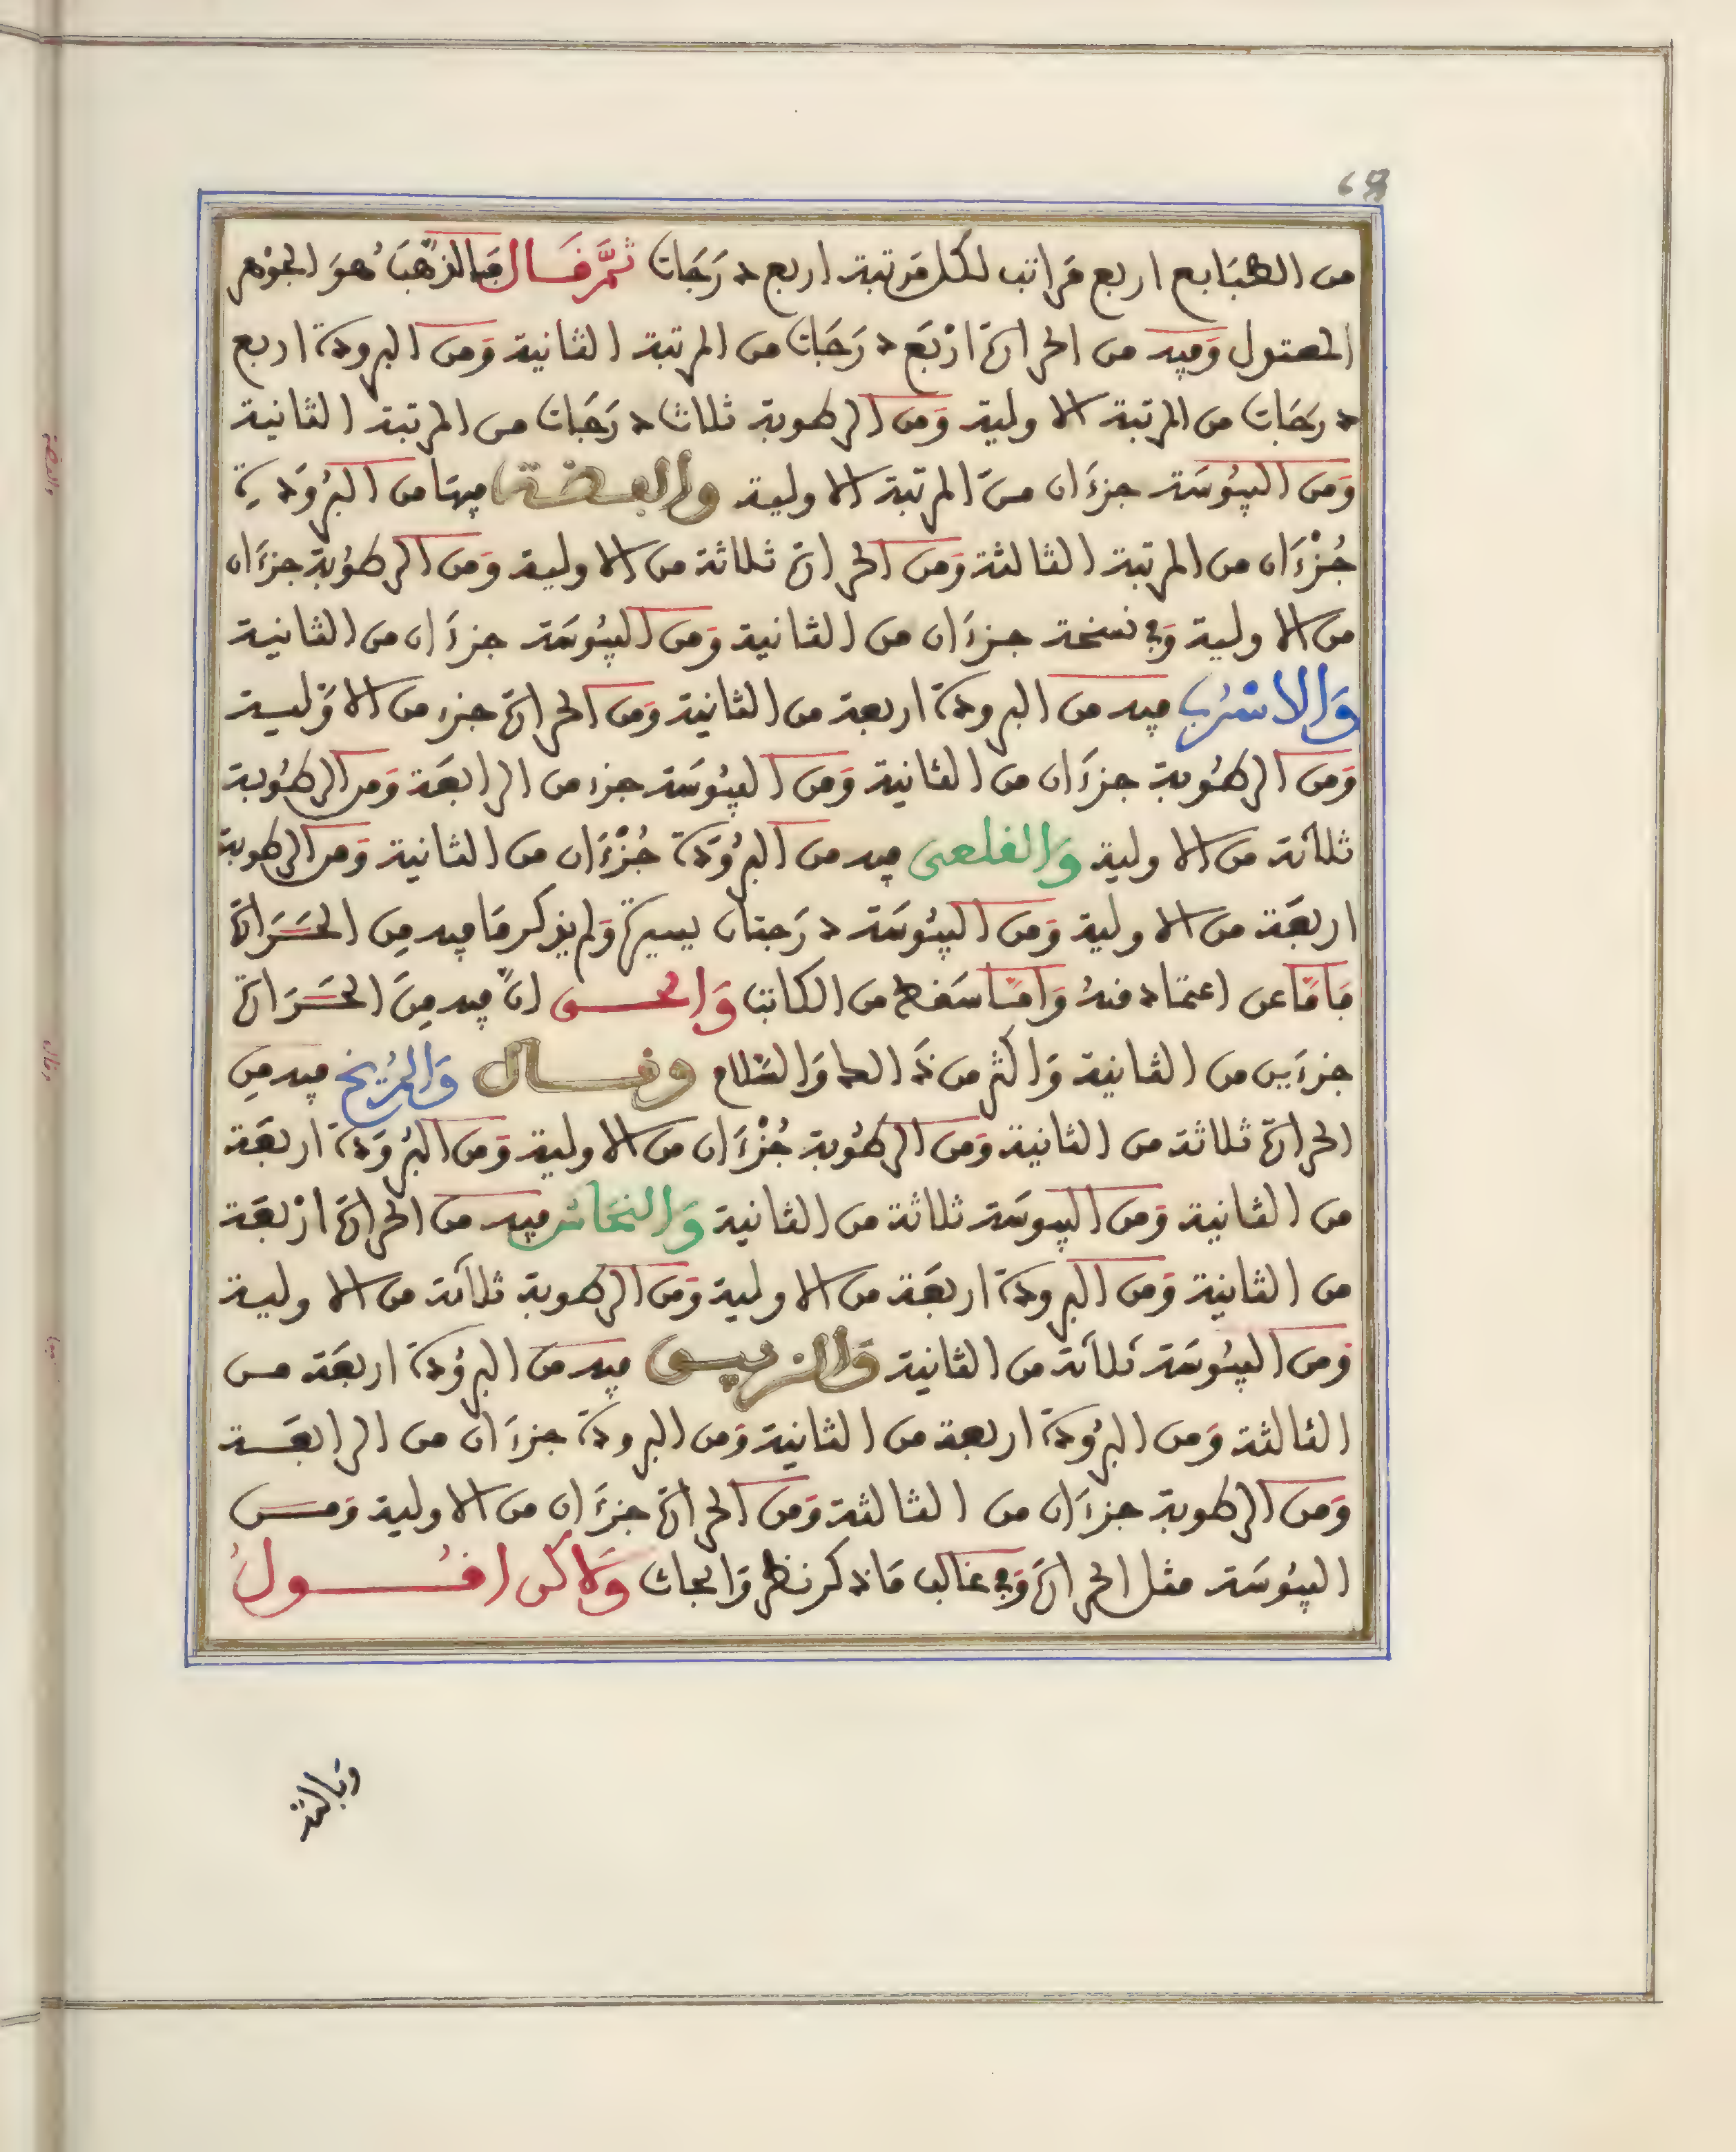 من الطبَايع اربع مَراتب لكل مَرتبة اربع دَرَجَات ثمَّ قَال فَالذّهَبُ هوَ الجوْهر
المعتدل وَفيه من الحرارة ارْبَع دَرَجَات من المرتبة الثانية وَمن البرودة اربع
درَجَات من المرتبة الاولية وَمن الرطوبة ثلاث درَجَات من المرتبة الثانية
وَمن اليبُوسَة جزءَان منَ المرتبة الاولية والفضة فيهَا من البرُودَة
جُزْءَان من المرتبة الثالثة وَمن الحرارة ثلاثة من الاولية وَمن الرطُوبة جزءَان
من الاولية وَفي نسخة جزءَان من الثانية وَمن اليبُوسَة جزءَان من الثانية
وَالاسْرُب فيه من البرودة اربعة من الثانية وَمن الحرارة جزء من الاوَلية
وَمن الرطُوبة جزءَان من الثانية وَمن اليبُوسَة جزء من الرابعَة وَمن الرطُوبة
ثلاثة من الاولية وَالقلعى فيه من البرُودَة جُزْءَان من الثانية وَمن الرطوبة
اربعَة من الاولية وَمن اليبُوسَة درَجتان يسيرة وَلم يذكر مَا فيه مِن الحَرَارة
فَامّا عن اعتماد منهُ وَامّا سَقط من الكاتب وَالحق انّ فيه مِنَ الحَرَارة
جزءَين من الثانية وَاكثر من ذَالك وَالسّلام وقال وَالمرّيخ فيه مِن
الحرارة ثلاثة من الثانية وَمن الرطُوبة جُزْءَان من الاولية وَمن البرُودَة اربعَة
من الثانية وَمن اليبوسَة ثلاثة من الثانية وَالنحَاس فيه من الحرارة ارْبعَة
من الثانية وَمن البرودة اربعَة من الاولية وَمن الرطوبة ثلاثة من الاولية
وَمن اليبُوسَة ثلاثة من الثانية وَالزيبق فيه من البرُودة اربعَة من
الثالثة وَمن البرُودة اربعة من الثانية وَمن البرودة جزءَان من الرابعَة
وَمن الرطوبة جزءَان من الثالثة وَمن الحرارة جزءَان من الاولية وَمن
اليبُوسَة مثل الحرارة وَفي غالب مَا ذكر نظر وَابحاث وَلاكن اقُولُ
وبالله